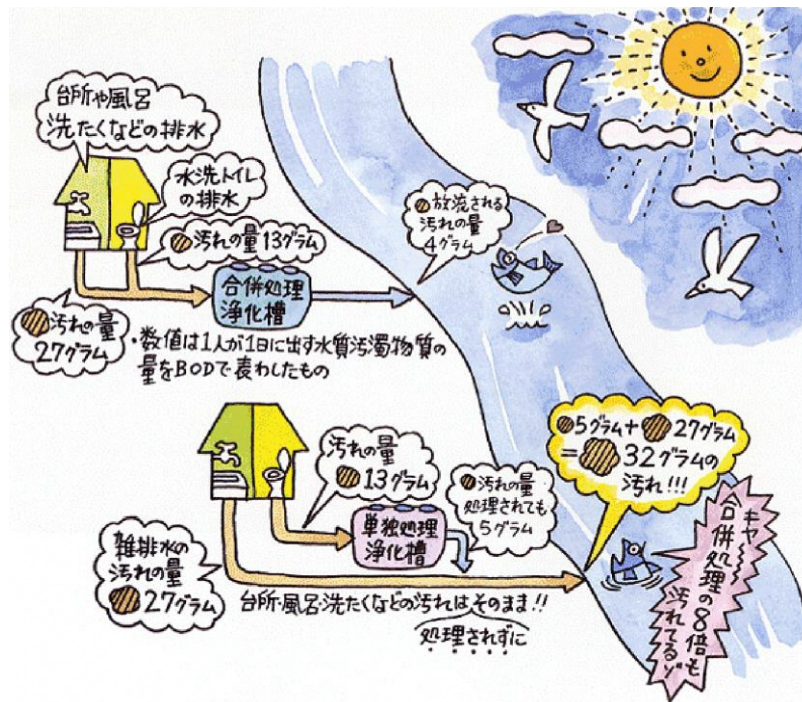 台所や風呂
洗たくなどの排水
水洗トイレ
の排水
汚れの量13グラム
合併処理
浄化槽
汚れの量
27グラム
放流される
汚れの量
4グラム
・数値は1人が1日に出す水質汚濁物質の
量をBODで表わしたもの
汚れの量
13グラム
単独処理
浄化槽
汚れの量
処理されても
5グラム
雑排水の
汚れの量
27グラム
台所・風呂・洗たくなどの汚れはそのまま!!
処理されずに
5グラム+27グラム
=32グラムの
汚れ!!!
キャー
合併処理の8倍も
汚れてるゾ